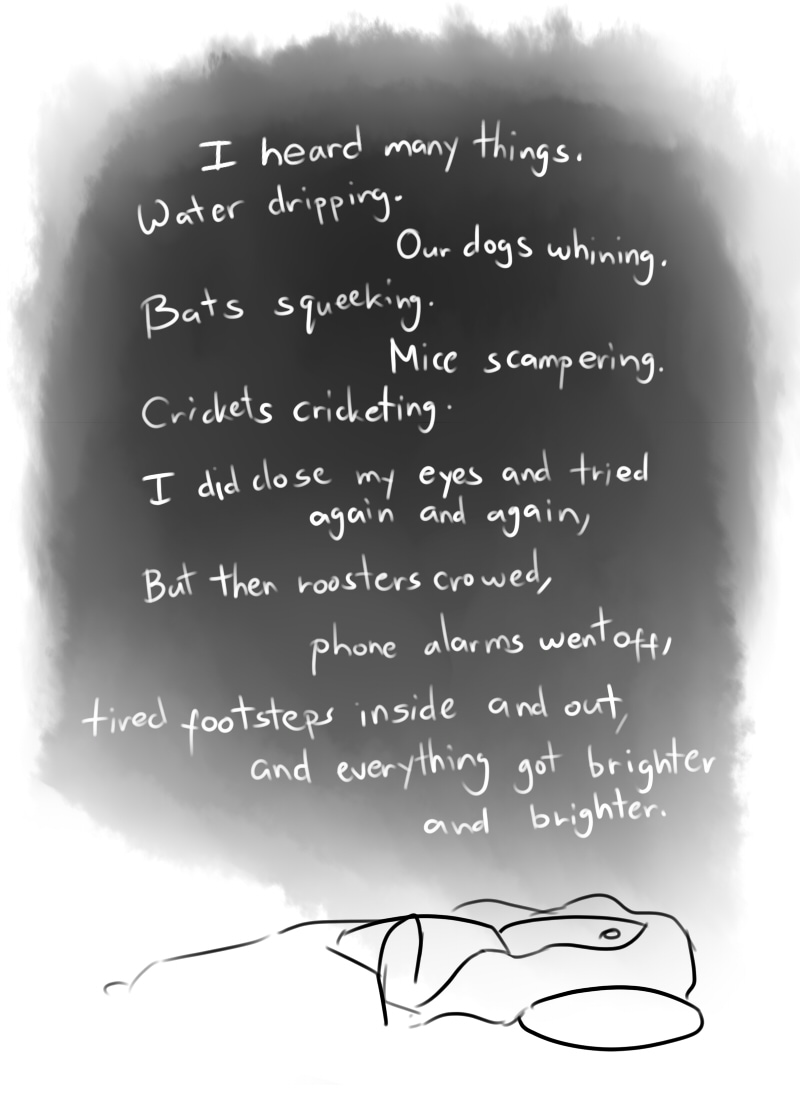 I heard many things.
Water dripping.
Our dogs whining.
Bats squeeking.
Mice scampering.
Crickets cricketing.
I did close my eyes and tried
again and again,
But then roosters crowed,
phone alarms went off,
tired footsteps inside and out,
and everything got brighter
and brighter.